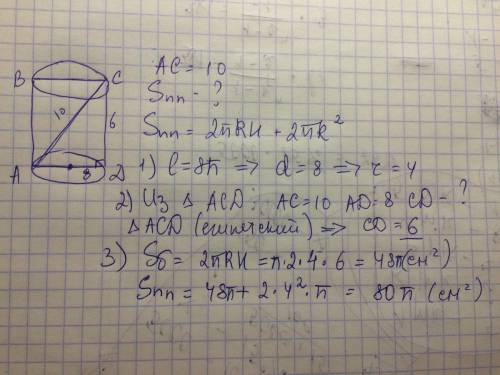 AC = 10
Sпп - ?
Sпп = 2πRH + 2πR²
1) l = 8π => d = 8 => r = 4
2) Из △ ACD: AC = 10 AD = 8 CD - ?
△ ACD (египетский) => CD = 6
3) Sб = 2πRH = π·2·4·6 = 48π (см²)
Sпп = 48π + 2·4²·π = 80π (см²)
B
C
10
6
A
8
D